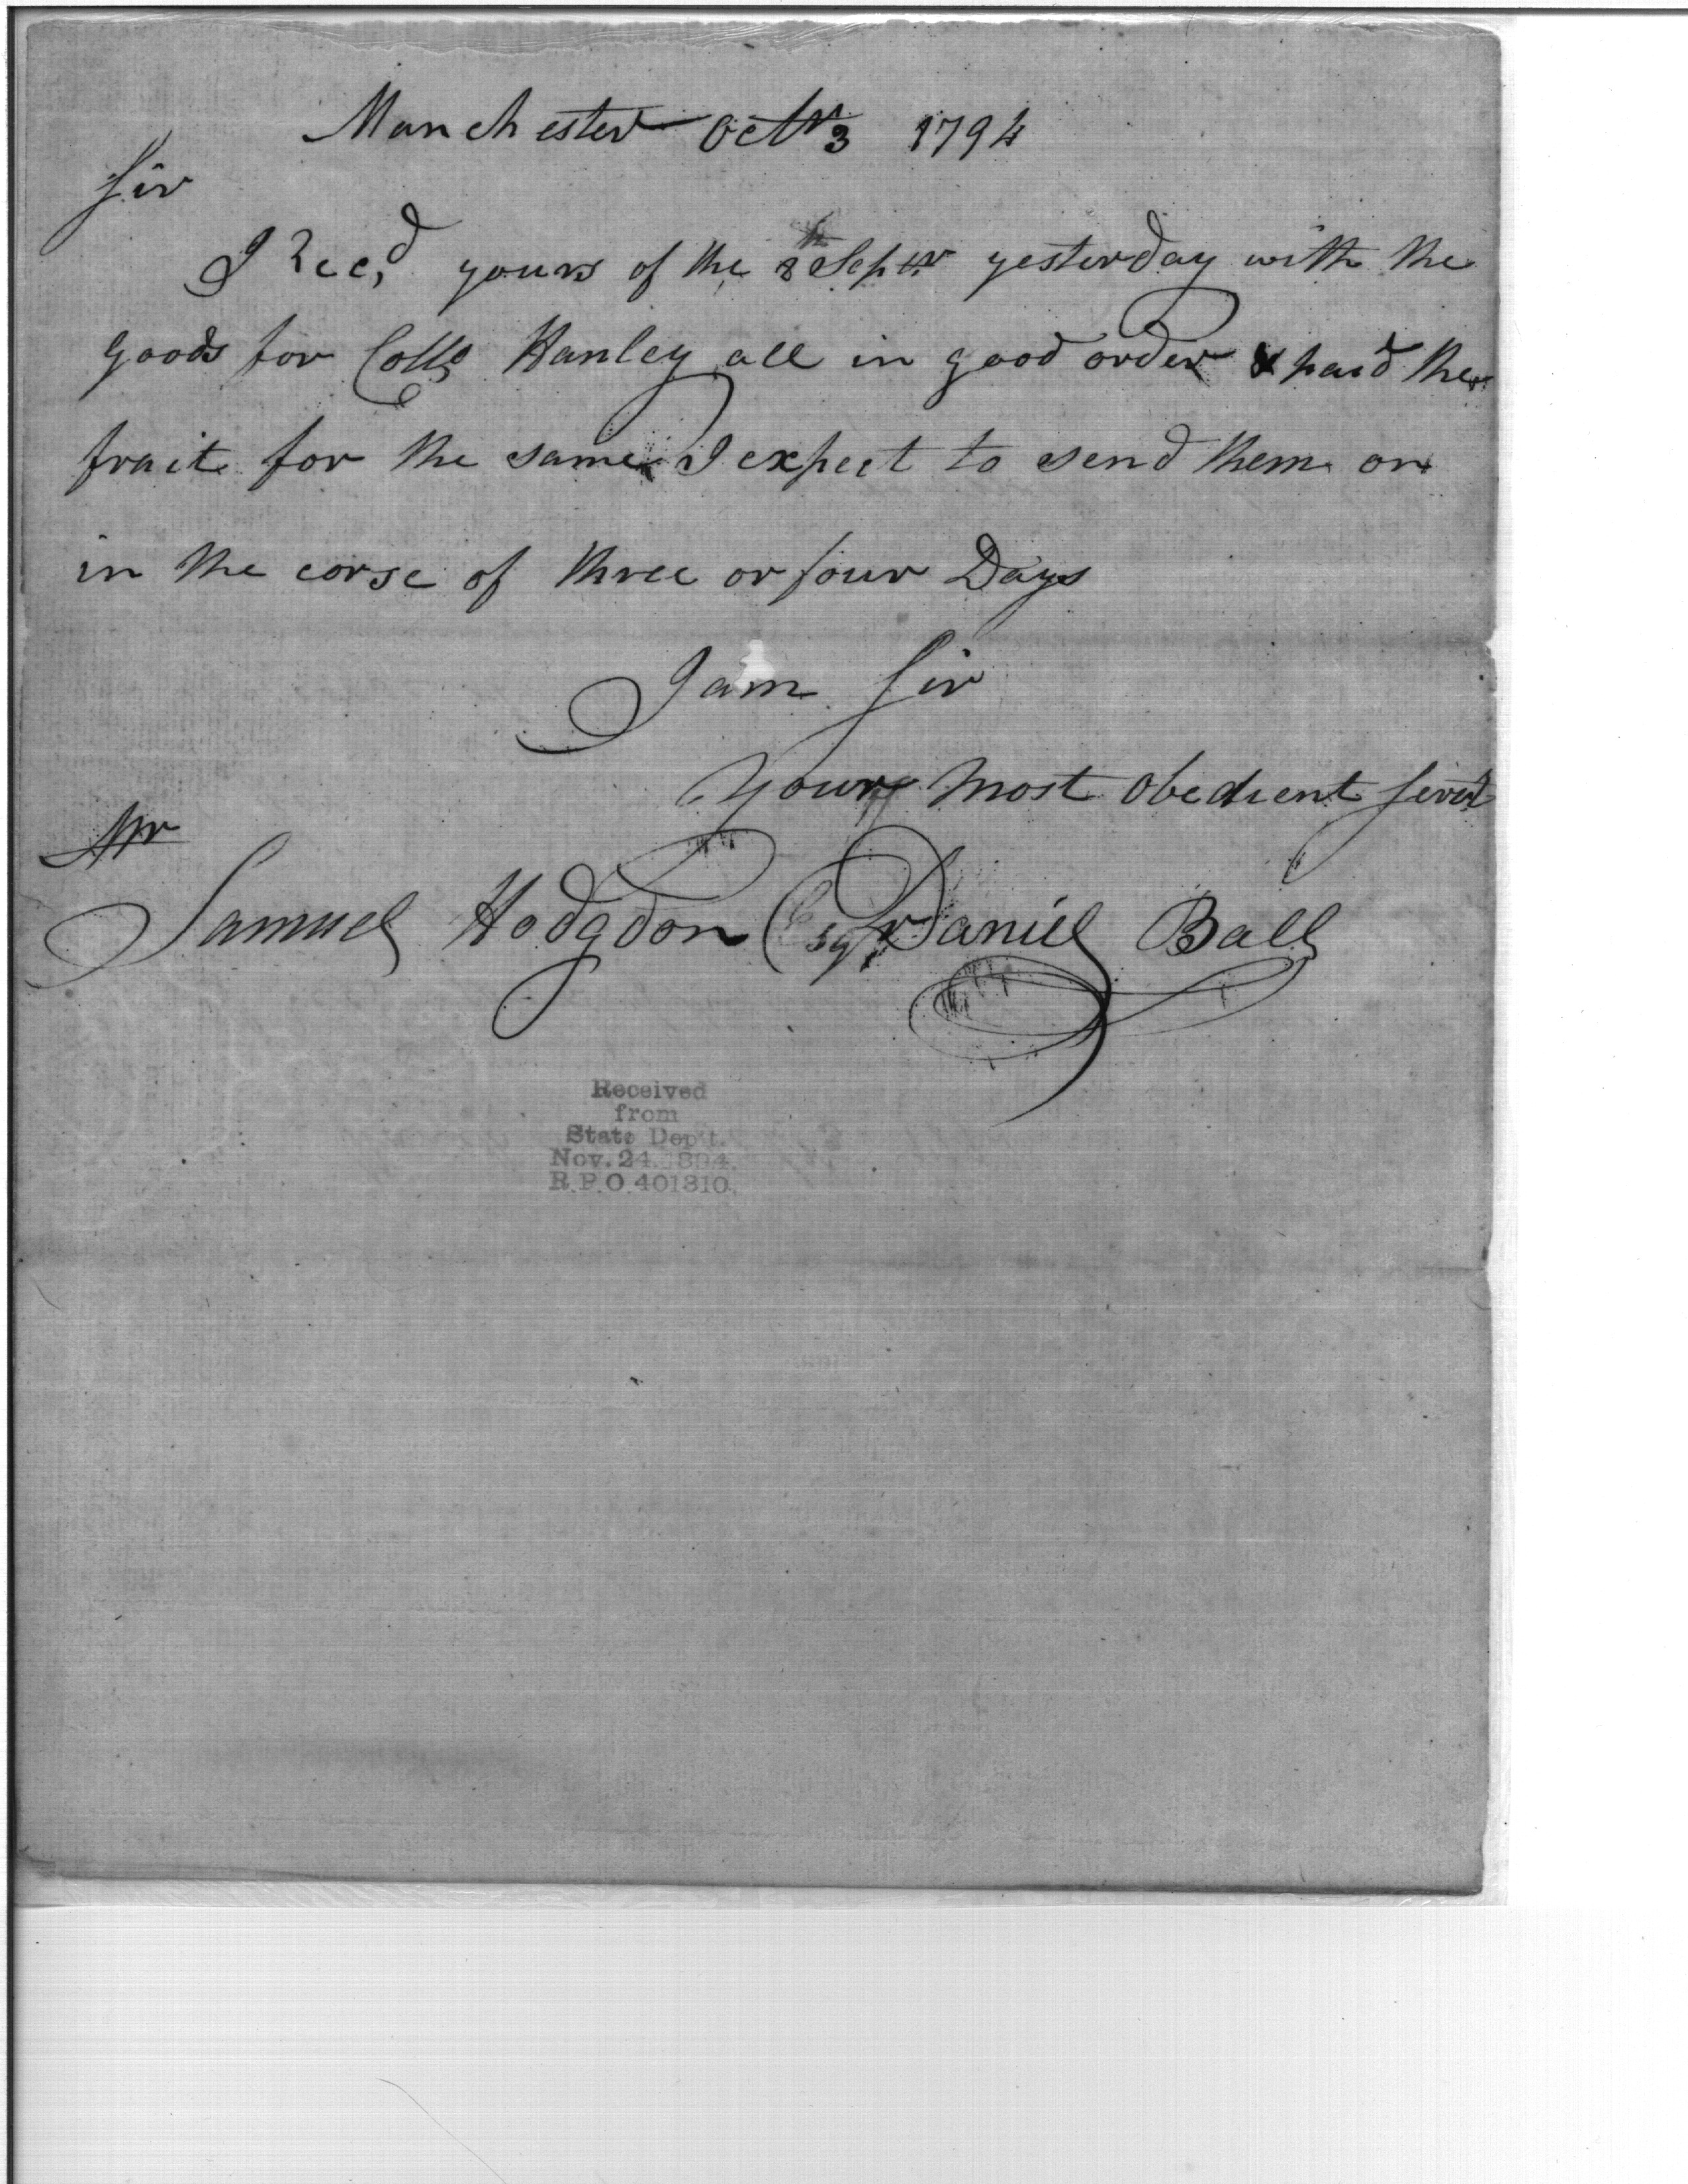 Manchester Octr 3 1794
Sir
I Recd, yours of the 8th Septr yesterday with the
goods for Collo Hanley all in good order & paid the
frait for the same I expect to send them on
in the corse of three or four Days
I am Sir
Your most obedient Servt
Mr
Samuel Hodgdon Esqr Daniel Ball
Received
from
State Dep't.
Nov. 24. 1894.
R.P.O. 401310.